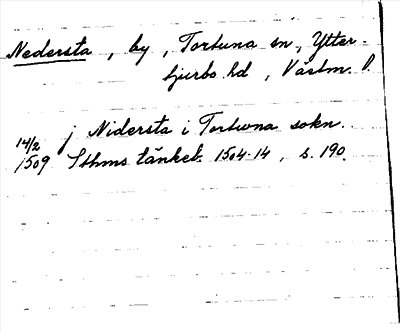 Nedersta, by, Tortuna sn, Ytter-
tjurbo hd, Västm. l.
14/2 j Nidersta i Tortwna sokn.
1509 Sthms tänkeb. 1504-14, s. 190.